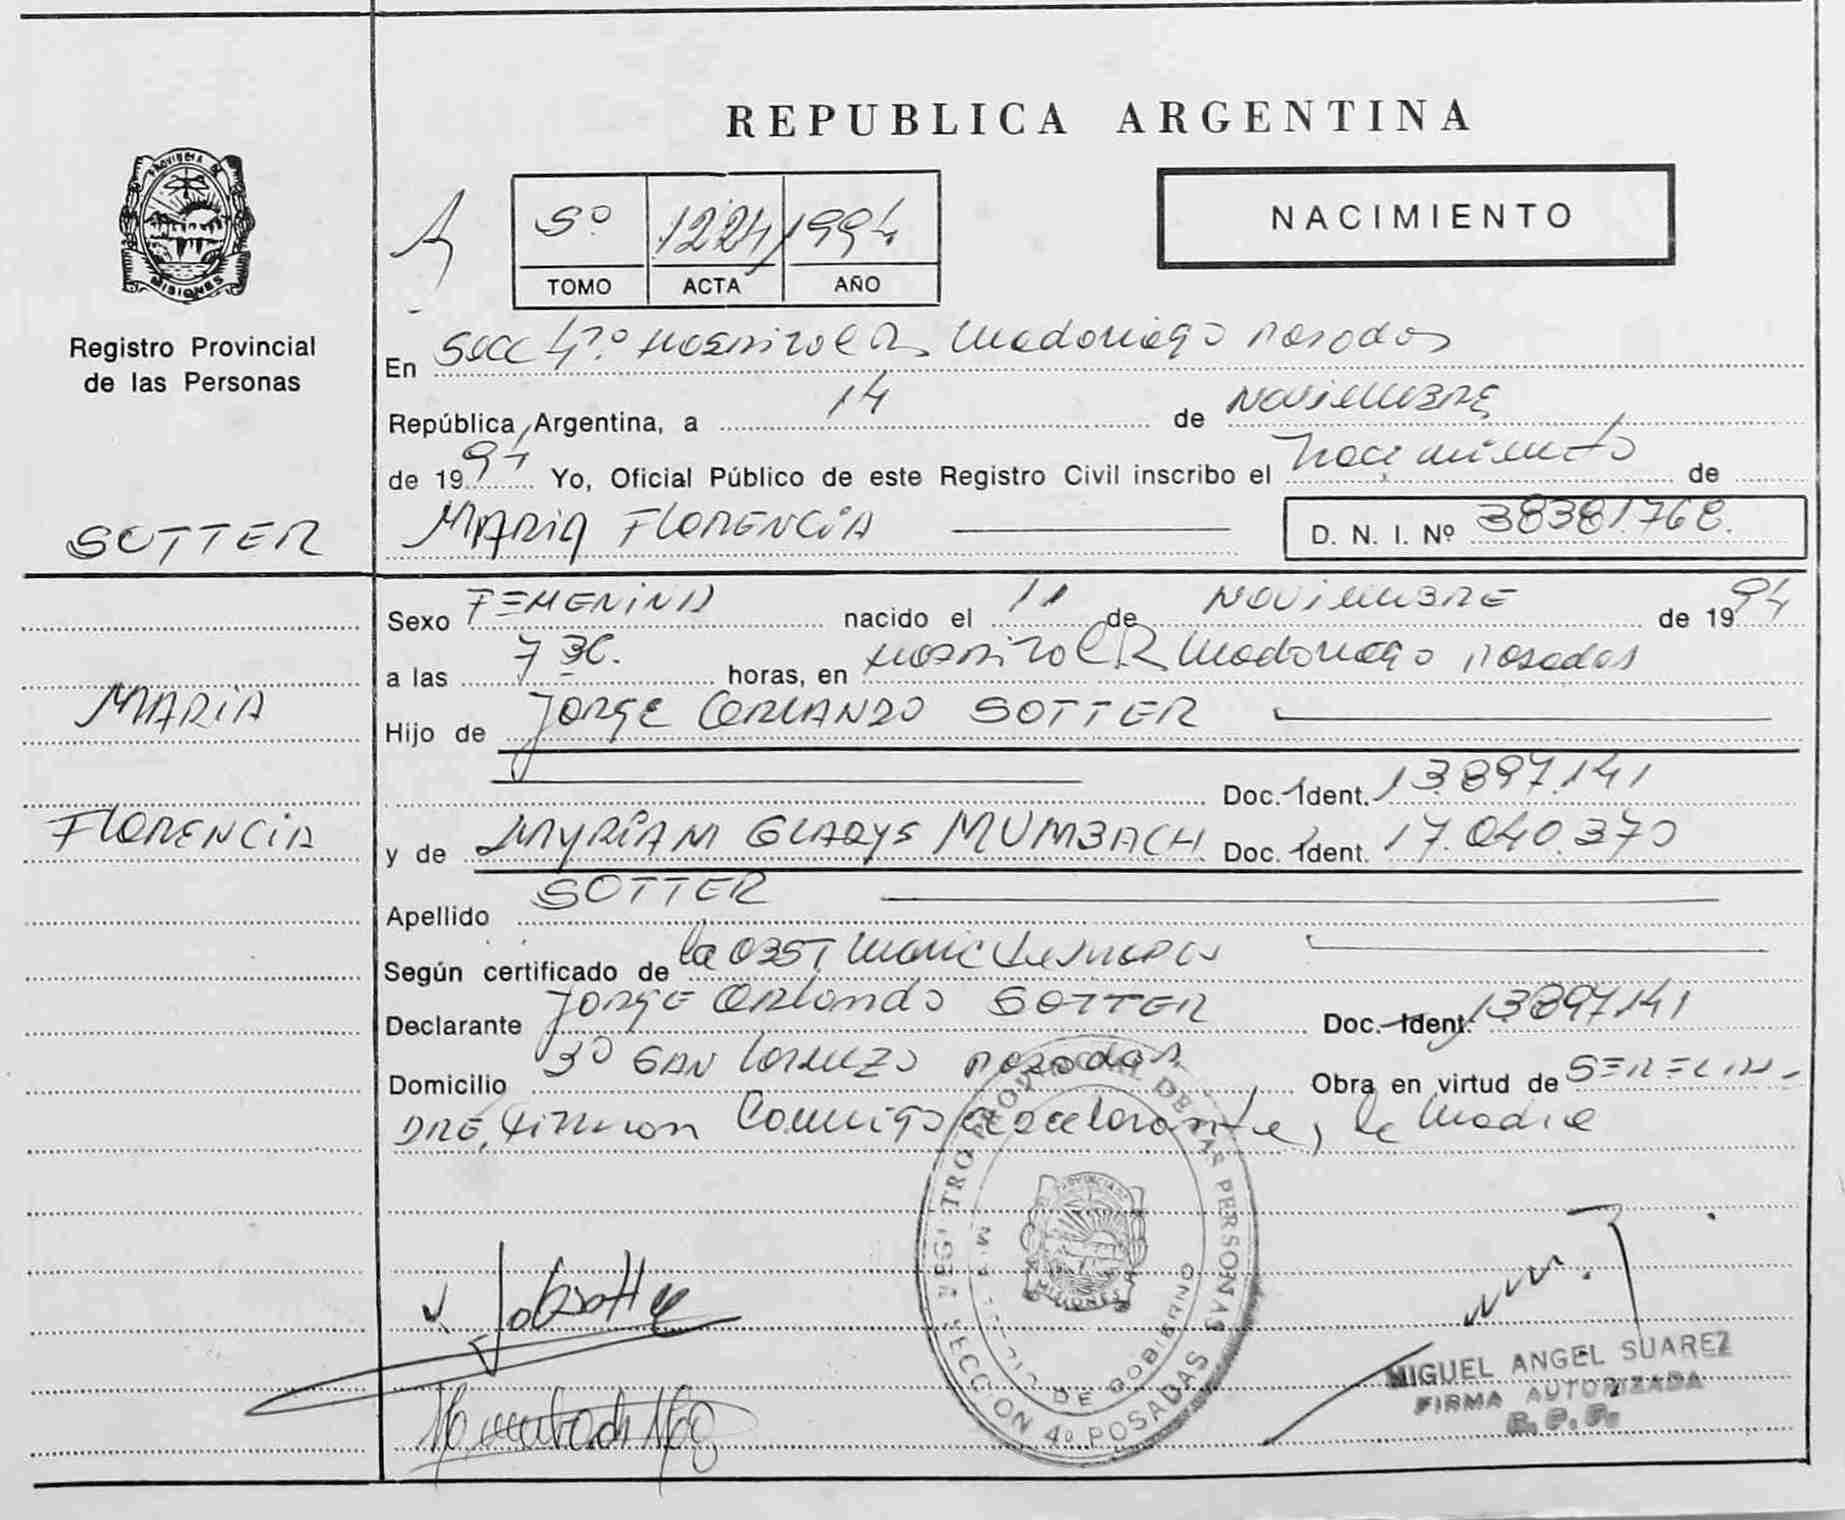 REPUBLICA ARGENTINA
PROVINCIA DE
MISIONES
Registro Provincial
de las Personas
5º 1224 1994
TOMO ACTA AÑO
NACIMIENTO
En Secc 4º Hospital R. Madariaga Posadas
República Argentina, a 14 de NOVIEMBRE
de 1994 Yo, Oficial Público de este Registro Civil inscribo el Nacimiento de
SOTTER
MARIA FLORENCIA
D. N. I. Nº 38381768.
Sexo FEMENINA nacido el 11 de NOVIEMBRE de 1994
a las 7 30. horas, en Hospital R Madariaga Posadas
MARIA
Hijo de JORGE ORLANDO SOTTER
Doc. Ident. 13.897.141
FLORENCIA
y de MYRIAM GLADYS MUMBACH Doc. Ident. 17.040.370
Apellido SOTTER
Según certificado de la OBST
Declarante JORGE Orlando SOTTER Doc. Ident. 13897141
Domicilio Bº SAN Lorenzo Posadas Obra en virtud de
Firman Conmigo declarante, la Madre
REGISTRO PROVINCIAL DE LAS PERSONAS
MINISTERIO DE GOBIERNO
MISIONES
SECCION 4º POSADAS
MIGUEL ANGEL SUAREZ
FIRMA AUTORIZADA
R. P. P.